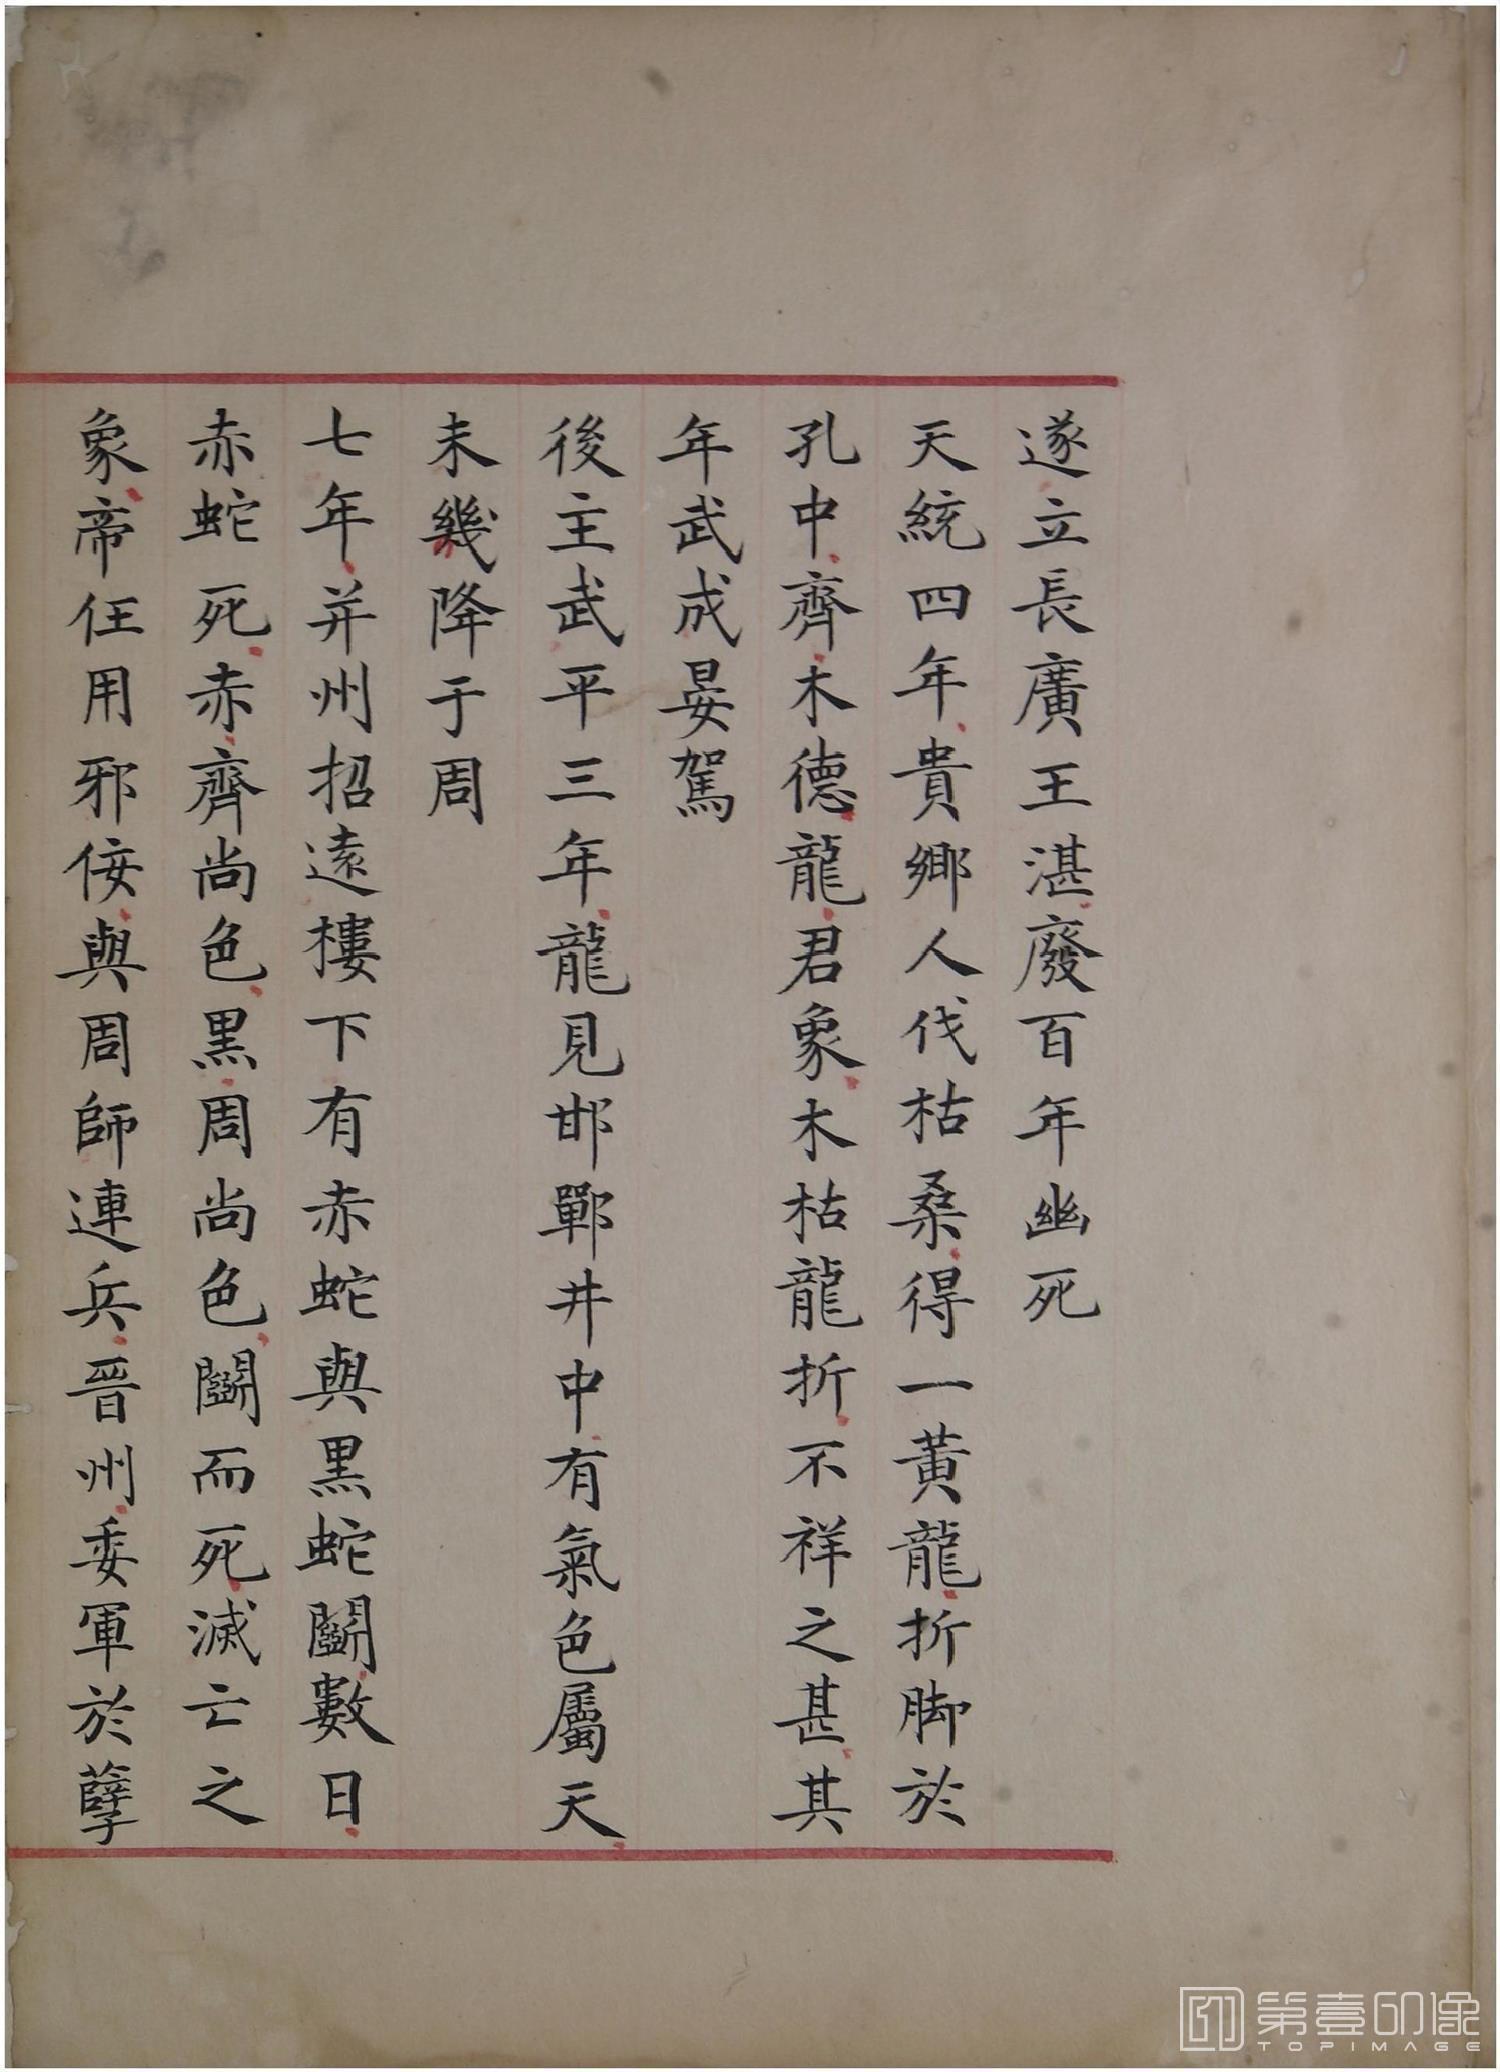 遂立長廣王湛廢百年幽死
天統四年貴鄉人伐枯桑得一黃龍折脚於
孔中齊木德龍君象木枯龍折不祥之甚其
年武成晏駕
後主武平三年龍見邯鄲井中有氣色屬天
未幾降于周
七年并州招遠樓下有赤蛇與黑蛇鬭數日
赤蛇死赤齊尚色黑周尚色鬭而死滅亡之
象帝任用邪佞與周師連兵晉州委軍於孽
第壹印像
TOPIMAGE